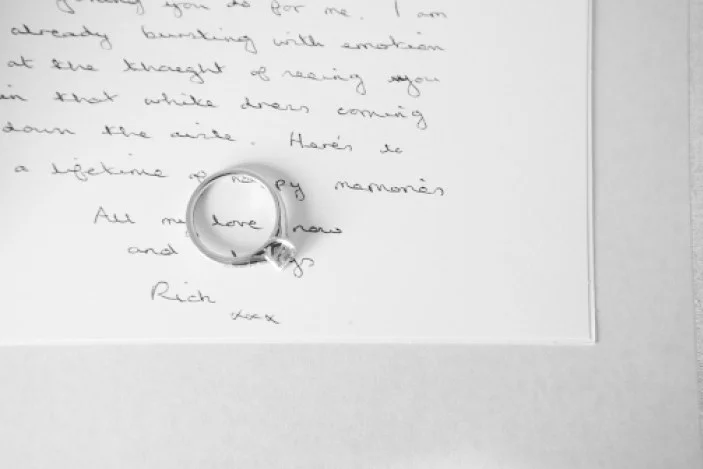 you is for me. I am
already bursting with emotion
at the thought of seeing you
in that white dress coming
down the aisle. Here's to
a lifetime of happy memories
All my love now
and
Rich
xxx